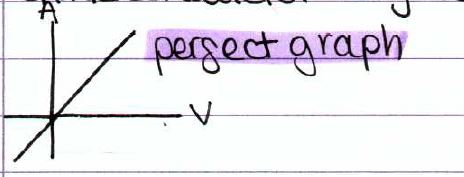 A
persect graph
V